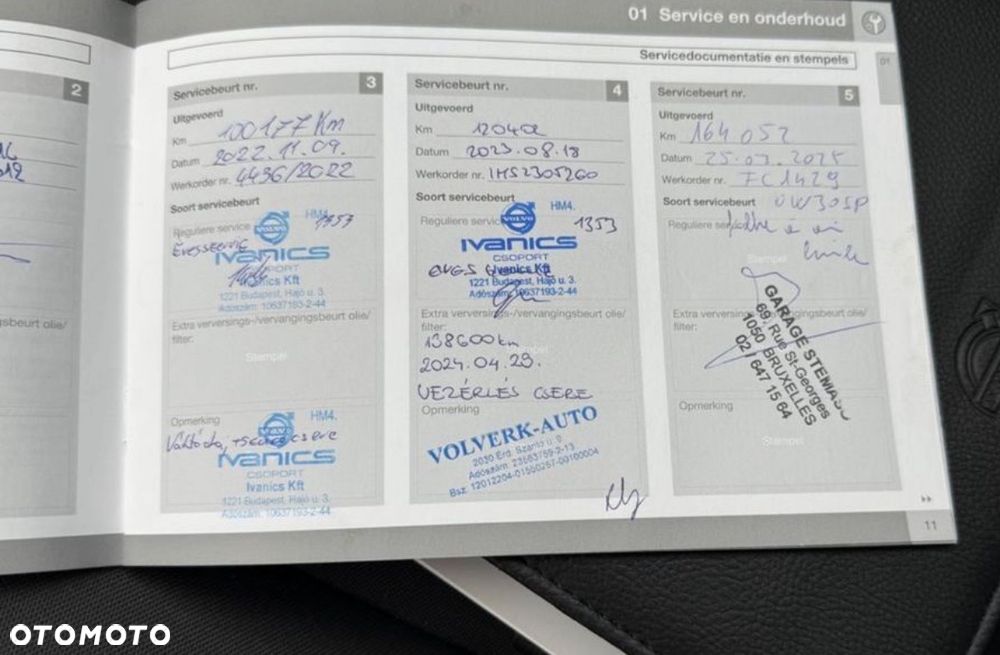 01 Service en onderhoud
Servicedocumentatie en stempels
01
2
Servicebeurt nr. 3
Uitgevoerd
Km 100177 Km
Datum 2022.11.09.
Werkorder nr. 4496/2022
Soort servicebeurt
Reguliere service
HM4. 1353
VOLVO
IVANICS
CSOPORT
Ivanics Kft
1221 Budapest, Hajó u. 3.
Adószám: 10637193-2-44
Extra verversings-/vervangingsbeurt olie/
filter:
Stempel
Opmerking
HM4.
VOLVO
csere
IVANICS
CSOPORT
Ivanics Kft
1221 Budapest, Hajó u. 3.
Adószám: 10637193-2-44
Servicebeurt nr. 4
Uitgevoerd
Km 120402
Datum 2023.08.18
Werkorder nr. IMS2305260
Soort servicebeurt
Reguliere service
HM4.
VOLVO
1353
IVANICS
CSOPORT
Ivanics Kft
1221 Budapest, Hajó u. 3.
Adószám: 10637193-2-44
Extra verversings-/vervangingsbeurt olie/
filter:
138600km
2024.04.29.
VEZÉRLÉS CSERE
Opmerking
VOLVERK-AUTO
2030 Érd, Szántó u. 9
Adószám: 23563759-2-13
Bsz: 12012204-01550257-00100004
Servicebeurt nr. 5
Uitgevoerd
Km 164 052
Datum 25.03.2025
Werkorder nr. FC1429
Soort servicebeurt 0W30SP
Reguliere service
Stempel
Extra verversings-/vervangingsbeurt olie/
filter:
GARAGE
69, Rue St-Georges
1050 BRUXELLES
02 / 647 15 64
Opmerking
Stempel
11
OTOMOTO